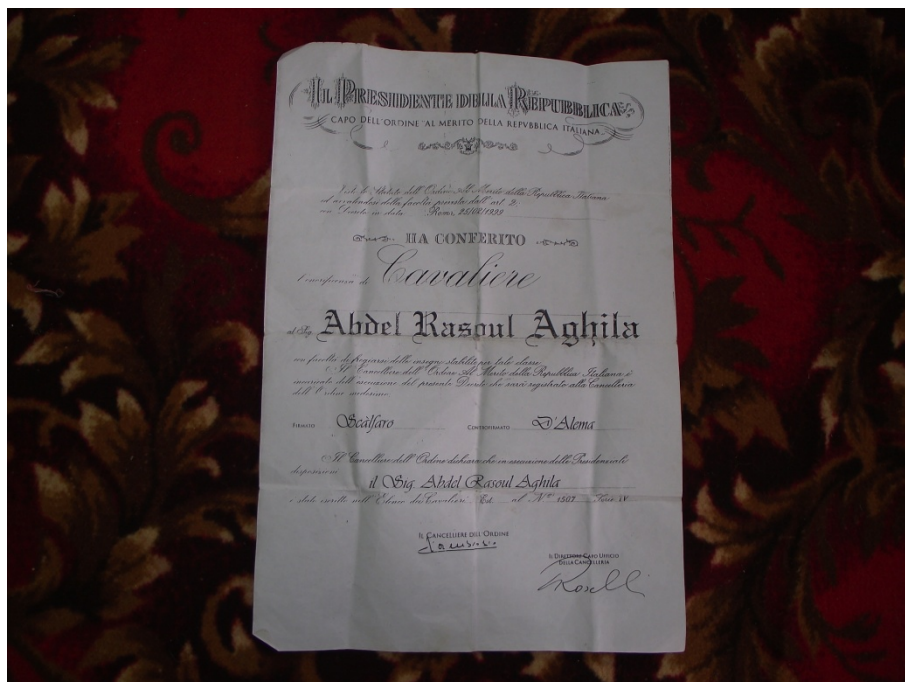 IL PRESIDENTE DELLA REPUBBLICA
CAPO DELL'ORDINE "AL MERITO DELLA REPVBBLICA ITALIANA"
Visto lo Statuto dell'Ordine Al Merito della Repubblica Italiana
ed avvalendosi della facoltà prevista dall'art. 2
con Decreto in data Roma,
HA CONFERITO
l'onorificenza di Cavaliere
al Sig. Abdel Rasoul Aghila
con facoltà di fregiarsi delle insegne stabilite per tale classe.
Il Cancelliere dell'Ordine Al Merito della Repubblica Italiana è
incaricato dell'esecuzione del presente Decreto che sarà registrato alla Cancelleria
dell'Ordine medesimo.
FIRMATO Scàlfaro CONTROFIRMATO D'Alema
Il Cancelliere dell'Ordine dichiara che in esecuzione delle Presidenziali
disposizioni
il Sig. Abdel Rasoul Aghila
è stato iscritto nell'Elenco dei Cavalieri Est. al N° 1307 Serie IV
IL CANCELLIERE DELL'ORDINE
IL DIRETTORE CAPO UFFICIO
DELLA CANCELLERIA